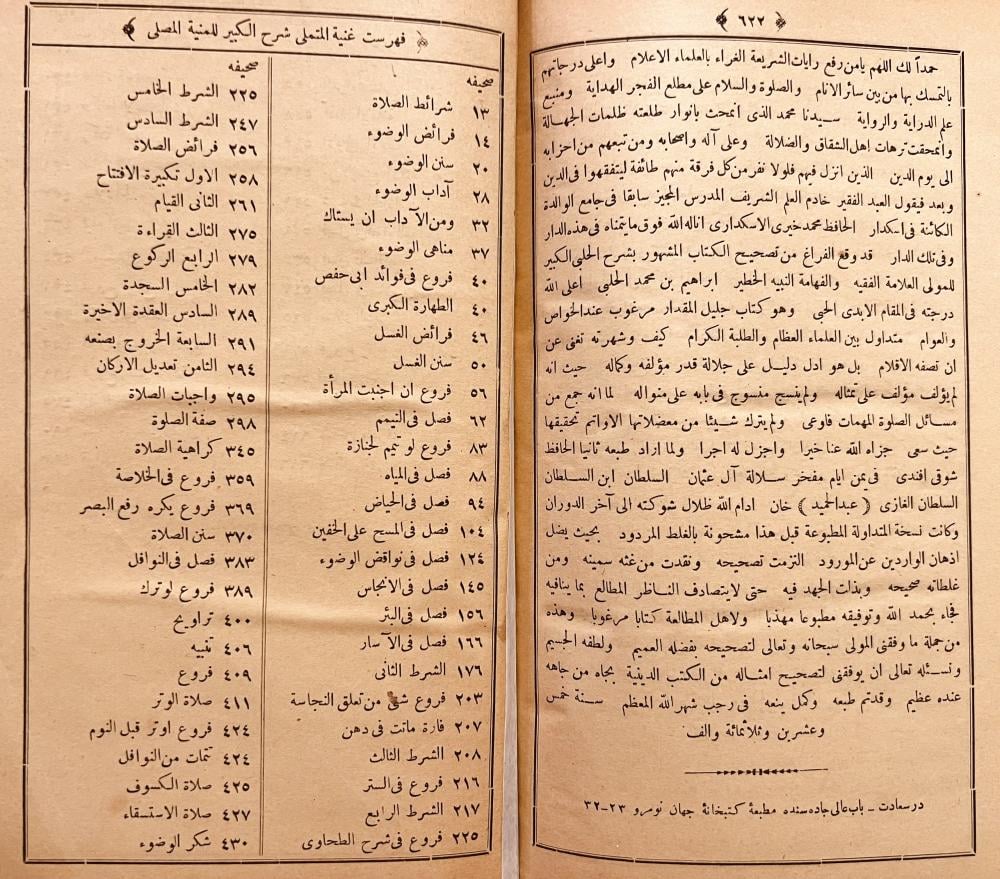 ٦٢٢
حمداً لك اللهم يامن رفع رايات الشريعة الغراء بالعلماء الاعلام واعلى درجاتهم
بالتمسك بها من بين سائر الانام والصلوة والسلام على مطلع الفجر الهداية ومنبع
علم الدراية والرواية سيدنا محمد الذى انمحت بانوار طلعته ظلمات الجهالة
وانمحقت ترهات اهل الشقاق والضلالة وعلى آله واصحابه ومن تبعهم من احزابه
الى يوم الدين الذين انزل فيهم فلولا نفر من كل فرقة منهم طائفة ليتفقهوا فى الدين
وبعد فيقول العبد الفقير خادم العلم الشريف المدرس المجيز سابقا فى جامع الوالدة
الكائنة فى اسكدار الحافظ محمد خيرى الاسكدارى اناله الله فوق مايتمناه فى هذه الدار
وفى تلك الدار قد وقع الفراغ من تصحيح الكتاب المشهور بشرح الحلبى الكبير
للمولى العلامة الفقيه والفهامة النبيه الخطير ابراهيم بن محمد الحلبى اعلى الله
درجته فى المقام الابدى الحبى وهو كتاب جليل المقدار مرغوب عند الخواص
والعوام متداول بين العلماء العظام والطلبة الكرام كيف وشهرته تغنى عن
ان تصفه الاقلام بل هو ادل دليل على جلالة قدر مؤلفه وكماله حيث انه
لم يؤلف مؤلف على تمثاله ولم ينسج منسوج فى بابه على منواله لما انه جمع من
مسائل الصلوة المهمات فاوعى ولم يترك شيئا من معضلاتها الا واتم تحقيقها
حيث سعى جزاه الله عنا خيرا واجزل له اجرا ولما اراد طبعه ثانيا الحافظ
شوقى افندى فى يمن ايام مفخر سلالة آل عثمان السلطان ابن السلطان
السلطان الغازى ( عبد الحميد ) خان ادام الله ظلال شوكته الى آخر الدوران
وكانت نسخة المتداولة المطبوعة قبل هذا مشحونة بالغلط المردود بحيث يضل
اذهان الواردين عن المورود التزمت تصحيحه ونقدت من غثه سمينه ومن
غلطاته صحيحه وبذلت الجهد فيه حتى لا يتصادف الناظر المطالع بما ينافيه
فجاء بحمد الله وتوفيقه مطبوعا مهذبا ولاهل المطالعة كتابا مرغوبا وهذه
من جملة ما وفقنى المولى سبحانه وتعالى لتصحيحه بفضله العميم ولطفه الجسيم
ونسئله تعالى ان يوفقنى لتصحيح امثاله من الكتب الدينية بجاه من جاهه
عنده عظيم وقدتم طبعه وكمل ينعه فى رجب شهر الله المعظم سنة خمس
وعشرين وثلاثمائة والف
درسعادت ـ باب عالى جاده سنده مطبعۀ كتبخانۀ جهان نومرو ٢٣-٣٢
فهرست غنية المتملى شرح الكبير للمنية المصلى
صحيفه
١٣ شرائط الصلاة
١٤ فرائض الوضوء
٢٠ سنن الوضوء
٢٨ آداب الوضوء
٣٢ ومن الآداب ان يستاك
٣٧ مناهى الوضوء
٤٠ فروع فى فوائد ابى حفص
٤٠ الطهارة الكبرى
٤٦ فرائض الغسل
٥٠ سنن الغسل
٥٦ فروع ان اجنبت المرأة
٦٢ فصل فى التيمم
٨٣ فروع لو تيمم لجنازة
٨٨ فصل فى المياه
٩٤ فصل فى الحياض
١٠٤ فصل فى المسح على الخفين
١٢٤ فصل فى نواقض الوضوء
١٤٥ فصل فى الانجاس
١٥٦ فصل فى البئر
١٦٦ فصل فى الآسار
١٧٦ الشرط الثانى
٢٠٣ فروع شتى من تعلق النجاسة
٢٠٧ فارة ماتت فى دهن
٢٠٨ الشرط الثالث
٢١٦ فروع فى الستر
٢١٧ الشرط الرابع
٢٢٥ فروع فى شرح الطحاوى
صحيفه
٢٢٥ الشرط الخامس
٢٤٧ الشرط السادس
٢٥٦ فرائض الصلاة
٢٥٨ الاول تكبيرة الافتتاح
٢٦١ الثانى القيام
٢٧٥ الثالث القراءة
٢٧٩ الرابع الركوع
٢٨٢ الخامس السجدة
٢٨٩ السادس العقدة الاخيرة
٢٩١ السابعة الخروج بصنعه
٢٩٤ الثامن تعديل الاركان
٢٩٥ واجبات الصلاة
٢٩٨ صفة الصلوة
٣٤٥ كراهية الصلاة
٣٥٩ فروع فى الخلاصة
٣٦٩ فروع يكره رفع البصر
٣٧٠ سنن الصلاة
٣٨٣ فصل فى النوافل
٣٨٩ فروع لو ترك
٤٠٠ تراويح
٤٠٦ تنبيه
٤٠٩ فروع
٤١١ صلاة الوتر
٤٢٤ فروع اوتر قبل النوم
٤٢٤ تتمات من النوافل
٤٢٥ صلاة الكسوف
٤٢٧ صلاة الاستسقاء
٤٣٠ شكر الوضوء